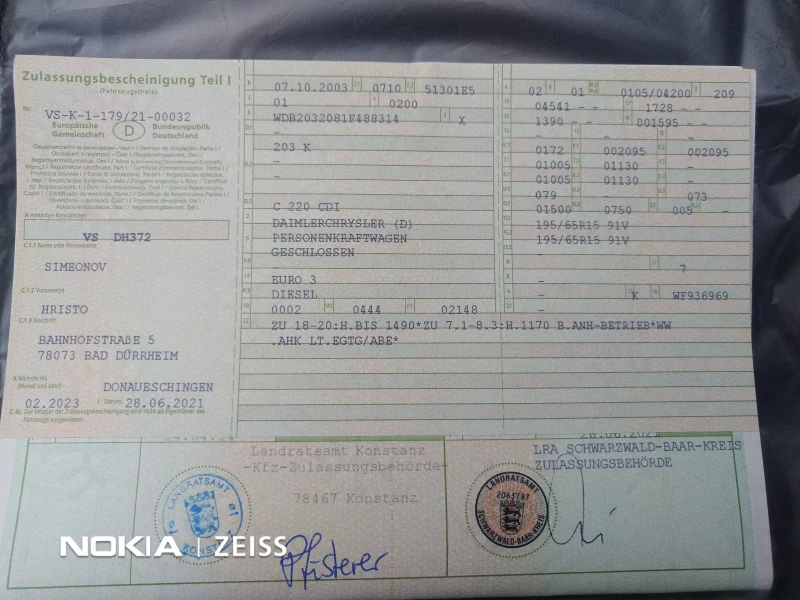 Zulassungsbescheinigung Teil I
(Fahrzeugschein)
Nr. VS-K-1-179/21-00032
Europäische Gemeinschaft D Bundesrepublik Deutschland
A Amtliches Kennzeichen
VS DH372
C.1.1 Name oder Firmenname
SIMEONOV
C.1.2 Vorname(n)
HRISTO
C.1.3 Anschrift
BAHNHOFSTRAßE 5
78073 BAD DÜRRHEIM
Nächste HU
(Monat und Jahr)
DONAUESCHINGEN
02.2023 I Datum: 28.06.2021
C.4c Der Inhaber der Zulassungsbescheinigung wird nicht als Eigentümer des
Fahrzeugs ausgewiesen.
07.10.2003 0710 51301E5
01 0200
WDB2032081F488314 X
-
203 K
-
-
C 220 CDI
DAIMLERCHRYSLER (D)
PERSONENKRAFTWAGEN
GESCHLOSSEN
-
EURO 3
DIESEL
0002 0444 02148
ZU 18-20:H.BIS 1490*ZU 7.1-8.3:H.1170 B.ANH-BETRIEB*WW
.AHK LT.EGTG/ABE*
02 01 0105/04200 209
04541 - - 1728 - -
1390 - - 001595 - -
-
0172 002095 002095
01005 01130 -
01005 01130 -
079 073
01500 0750 005 -
195/65R15 91V
195/65R15 91V
-
- 7
-
- K WF936969
-
Landratsamt Konstanz
-Kfz-Zulassungsbehörde-
78467 Konstanz
LANDRATSAMT
KONSTANZ
Pfisterer
28.06.2021
LRA SCHWARZWALD-BAAR-KREIS
ZULASSUNGSBEHÖRDE
LANDRATSAMT
2063787
SCHWARZWALD-BAAR-KREIS
NOKIA | ZEISS